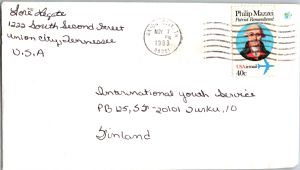 Lori Legate
1222 South Second Street
Union City, Tennessee
U.S.A
NOV 1
PM
1983
Philip Mazzei
Patriot Remembered
USAirmail
40c
International Youth Service
PB 125, SF-20101 Turku, 10
Finland